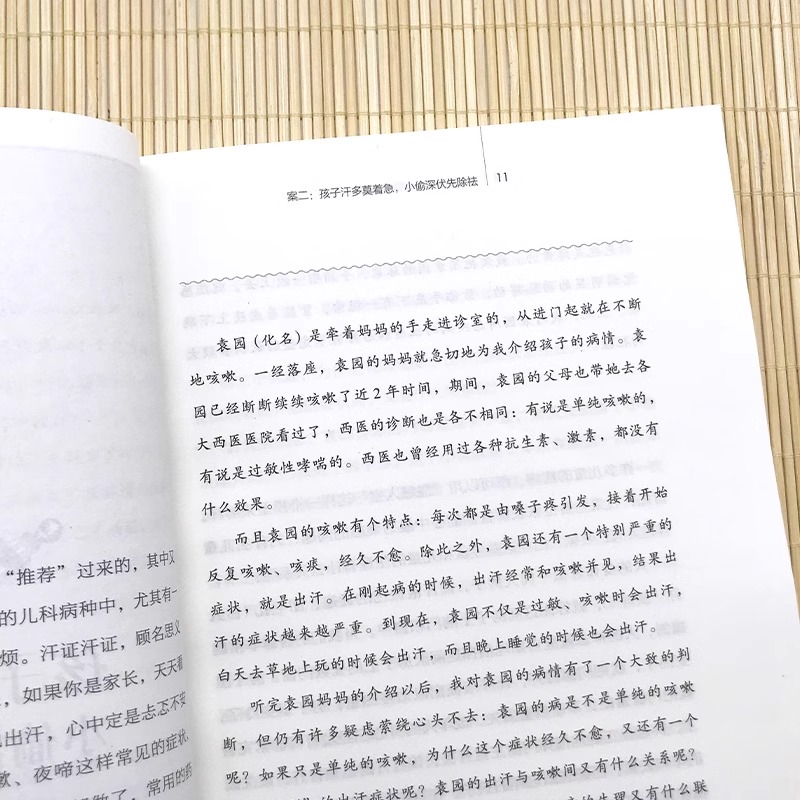 “推荐”过来的，其中又
的儿科病种中，尤其有一
烦。汗证汗证，顾名思义
，如果你是家长，天天看
出汗，心中定是忐忑不安
嗽、夜啼这样常见的症状
常用的药
案二：孩子汗多莫着急，小偷深伏先除祛 11
袁园（化名）是牵着妈妈的手走进诊室的，从进门起就在不断
地咳嗽。一经落座，袁园的妈妈就急切地为我介绍孩子的病情。袁
园已经断断续续咳嗽了近2年时间，期间，袁园的父母也带她去各
大西医医院看过了，西医的诊断也是各不相同：有说是单纯咳嗽的，
有说是过敏性哮喘的。西医也曾经用过各种抗生素、激素，都没有
什么效果。
而且袁园的咳嗽有个特点：每次都是由嗓子疼引发，接着开始
反复咳嗽、咳痰，经久不愈。除此之外，袁园还有一个特别严重的
症状，就是出汗。在刚起病的时候，出汗经常和咳嗽并见，结果出
汗的症状越来越严重。到现在，袁园不仅是过敏、咳嗽时会出汗，
白天去草地上玩的时候会出汗，而且晚上睡觉的时候也会出汗。
听完袁园妈妈的介绍以后，我对袁园的病情有了一个大致的判
断，但仍有许多疑虑萦绕心头不去：袁园的病是不是单纯的咳嗽
呢？如果只是单纯的咳嗽，为什么这个症状经久不愈，又还有一个
的出汗症状呢？袁园的出汗与咳嗽间又有什么关系呢？
的生理又有什么联